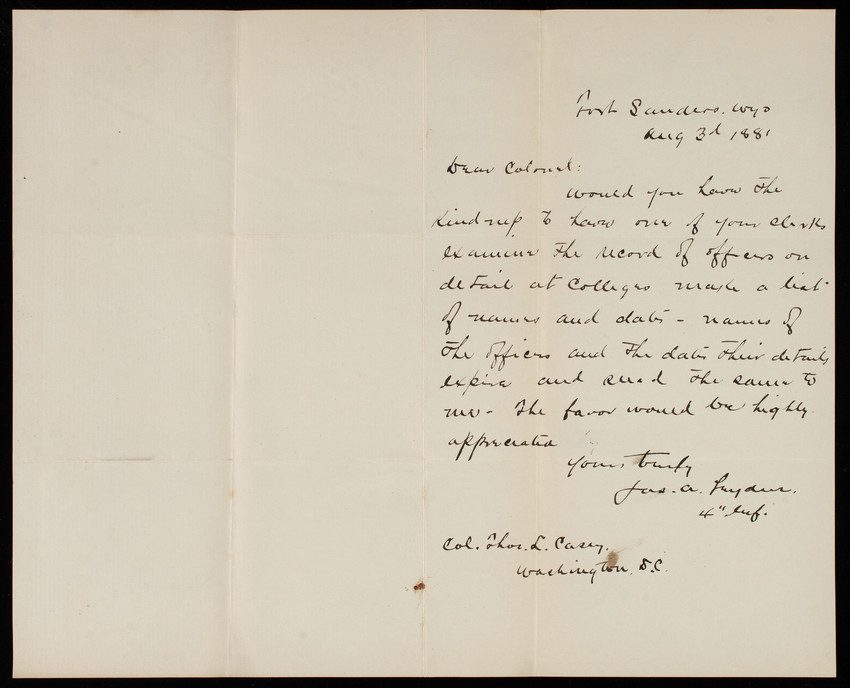 Fort Sanders. Wyo
Aug 3d 1881
Dear Colonel:
Would you have the
kindness to have one of your clerks
examine the record of officers on
detail at Colleges make a list
of names and dates - names of
the officers and the dates their details
expire and send the same to
me - The favor would be highly
appreciated
Yours truly
Jas. A. Snyder.
4" Inf.
Col. Thos. L. Casey.
Washington. D.C.